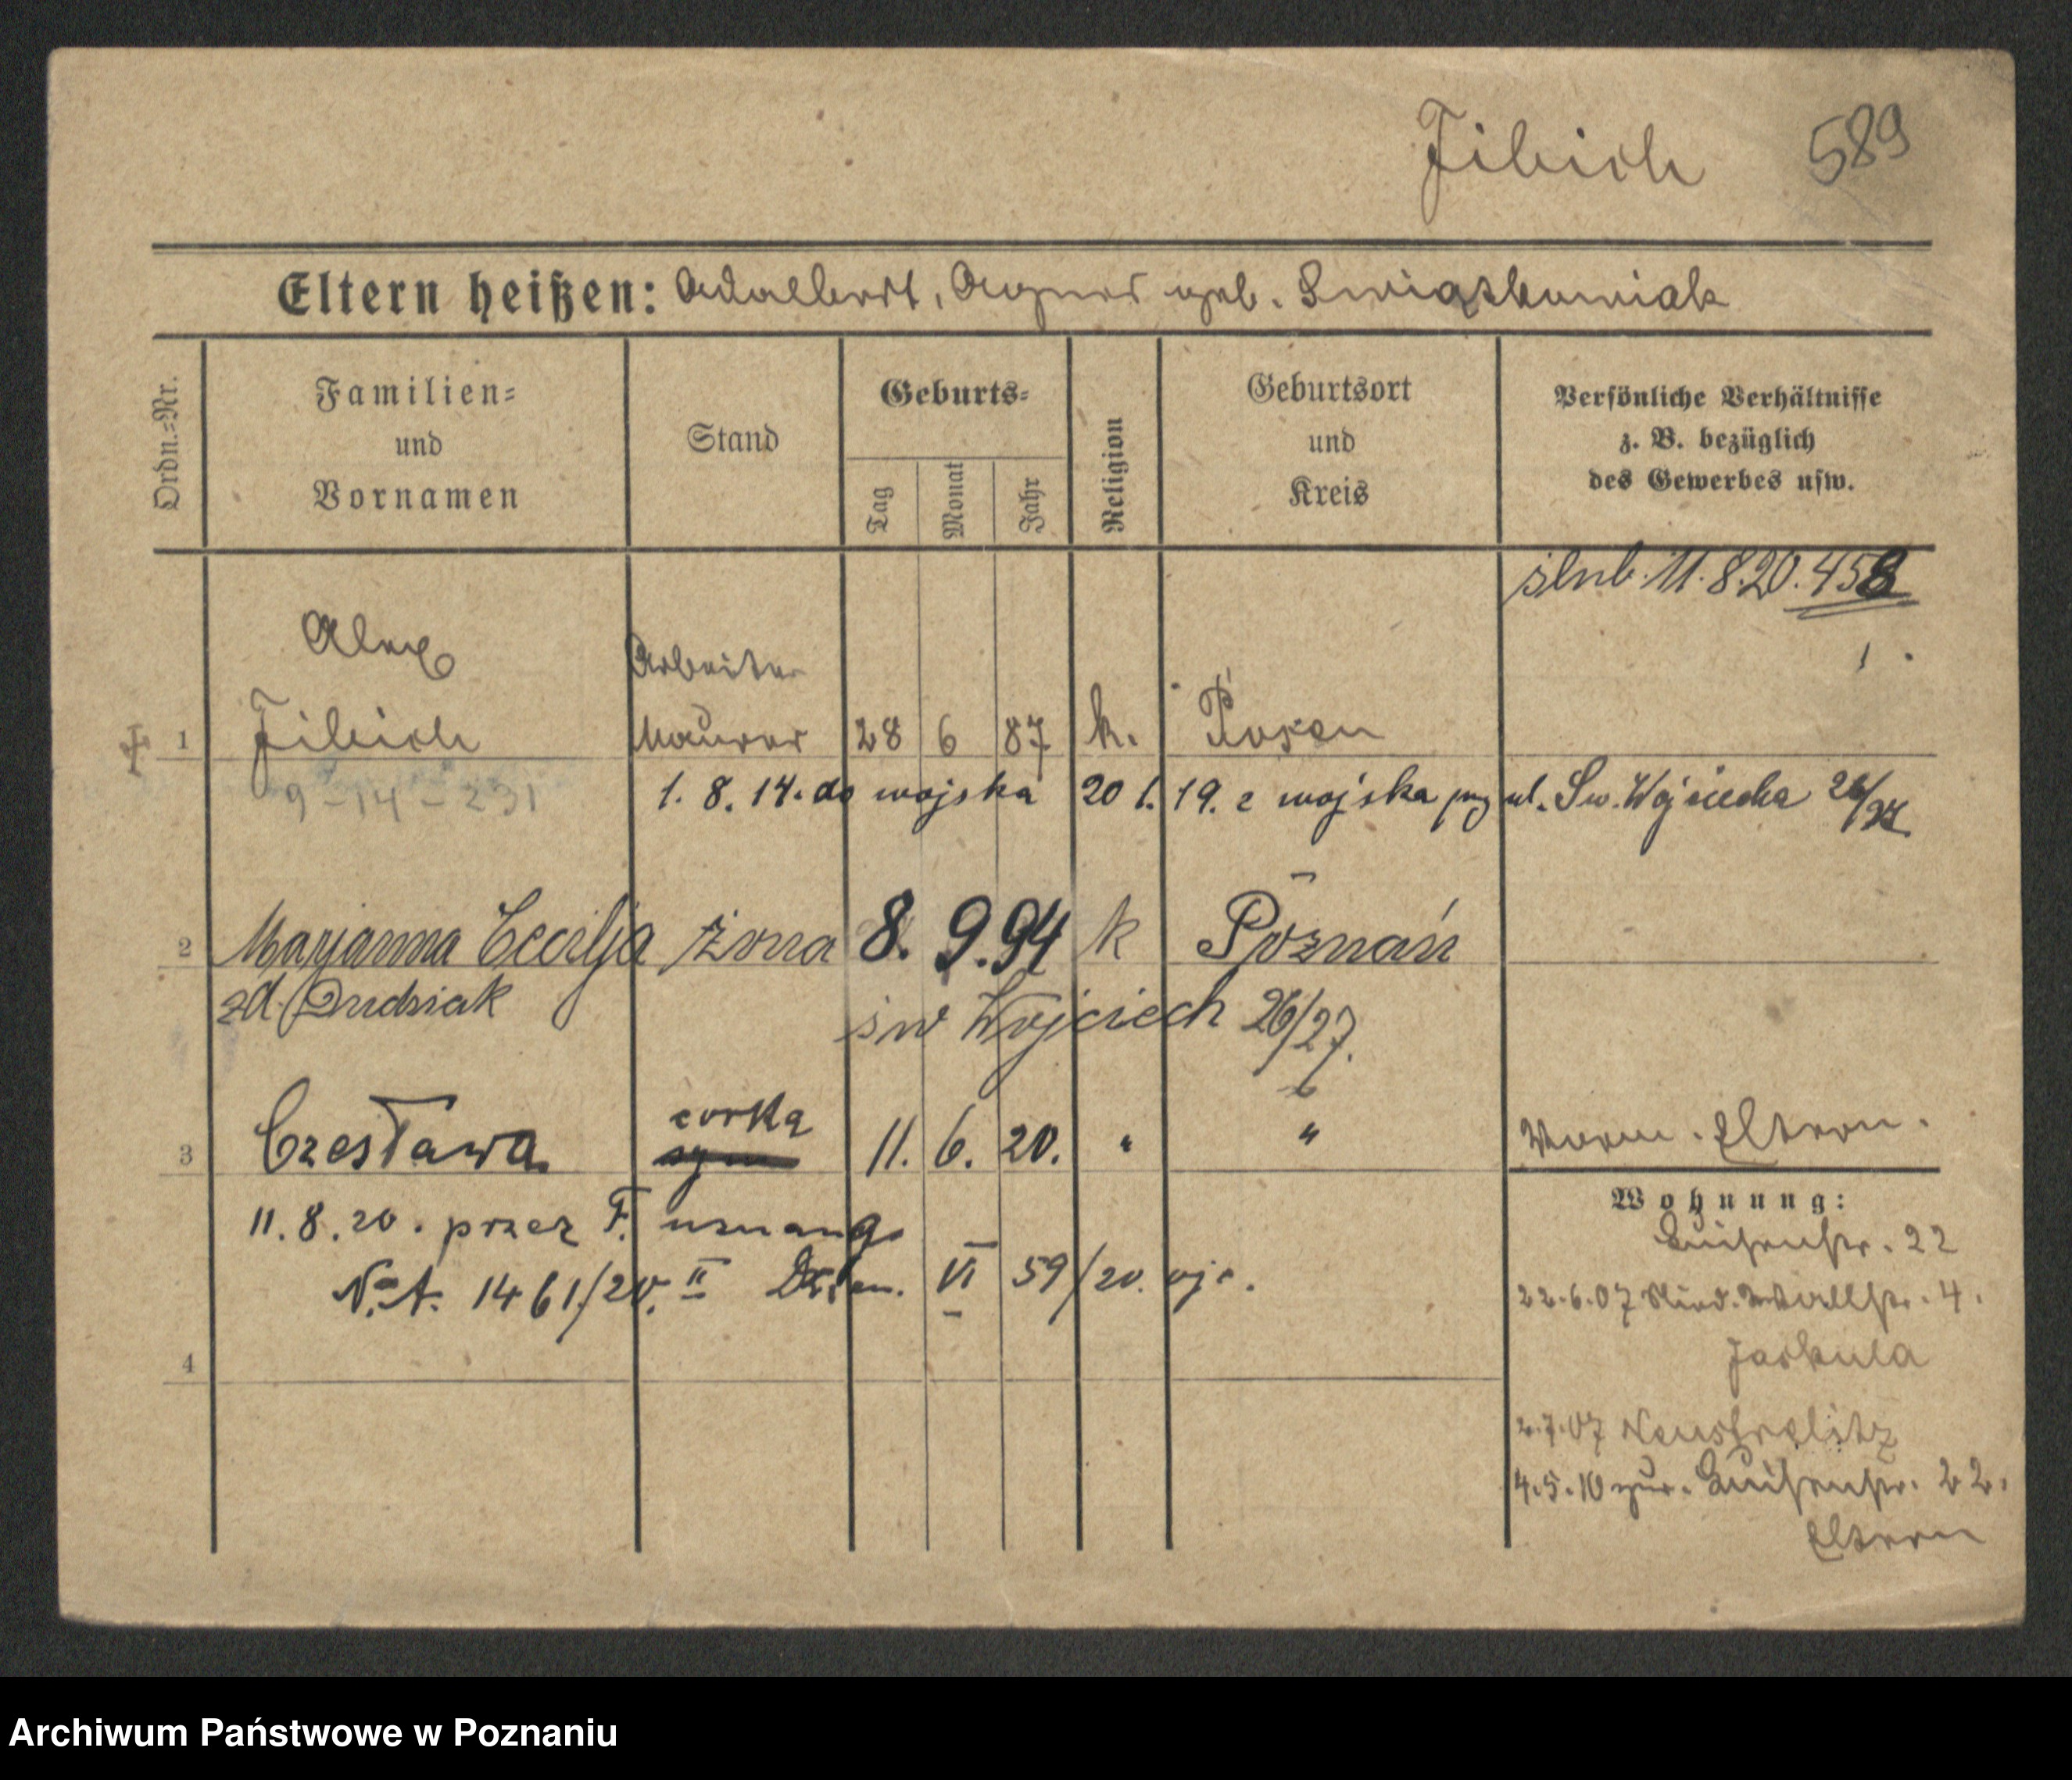 Fibich 589
Eltern heißen: Adalbert, Agnes geb. Swiqtkowiak
Ordn.-Nr.
Familien-
und
Vornamen
Stand
Geburts-
Tag
Monat
Jahr
Religion
Geburtsort
und
Kreis
Persönliche Verhältnisse
z. B. bezüglich
des Gewerbes usw.
ślub. 11.8.20. 458
Alex
Arbeiter
1 Fibich Maurer 28 6 87 k. Posen
9-14-231
1. 8. 14. do wojska 20 1. 19. z wojska ul. Św. Wojciecha 26/27.
2 Marjanna Cecilja żona 8. 9. 94 k Poznań
zd. Dudziak
św Wojciech 26/27.
córka
3 Czesława syn 11. 6. 20. " " Eltern.
11.8.20. przez F. uznang.
N.A. 1461/20. II VI 59/20.
Wohnung:
Luisenstr. 22
22.6.07 Wallstr. 4.
Jaskula
2.7.07 Neustrelitz
4
4.5.10 zur. Luisenstr. 22.
Eltern
Archiwum Państwowe w Poznaniu